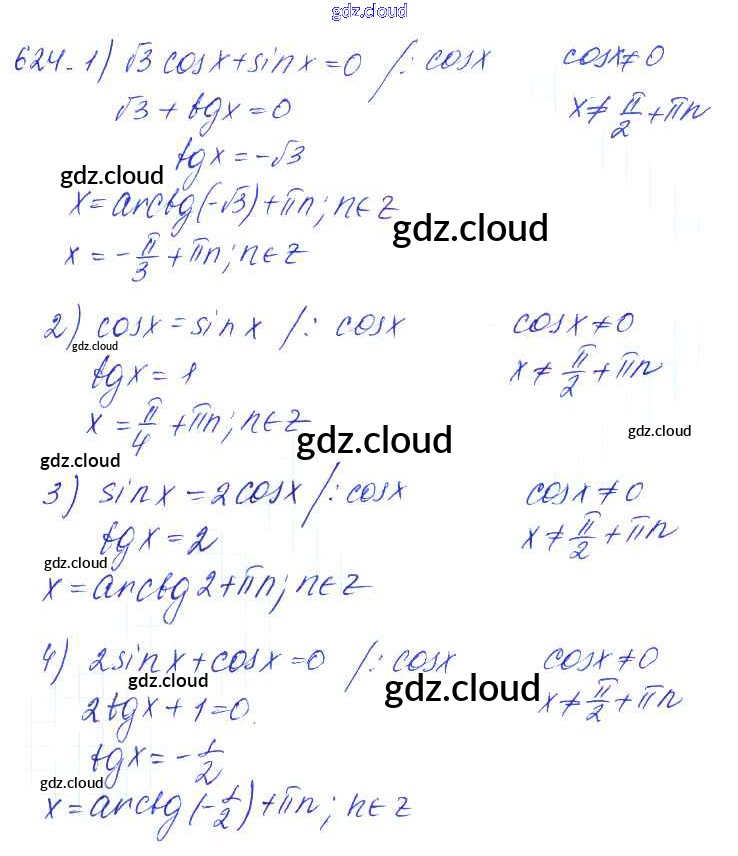 gdz.cloud
624-1) √3 cosx+sinx=0 /: cosx cosx≠0
√3+tgx=0 x≠π/2+πn
tgx=-√3
gdz.cloud
x=arctg(-√3)+πn; n∈Z
gdz.cloud
x=-π/3+πn; n∈Z
2) cosx=sinx /: cosx cosx≠0
gdz.cloud
tgx=1 x≠π/2+πn
x=π/4+πn; n∈Z
gdz.cloud gdz.cloud gdz.cloud
3) sinx=2cosx /: cosx cosx≠0
tgx=2 x≠π/2+πn
gdz.cloud
x=arctg2+πn; n∈Z
4) 2sinx+cosx=0 /: cosx cosx≠0
gdz.cloud gdz.cloud
2tgx+1=0. x≠π/2+πn
tgx=-1/2
gdz.cloud
x=arctg(-1/2)+πn; n∈Z